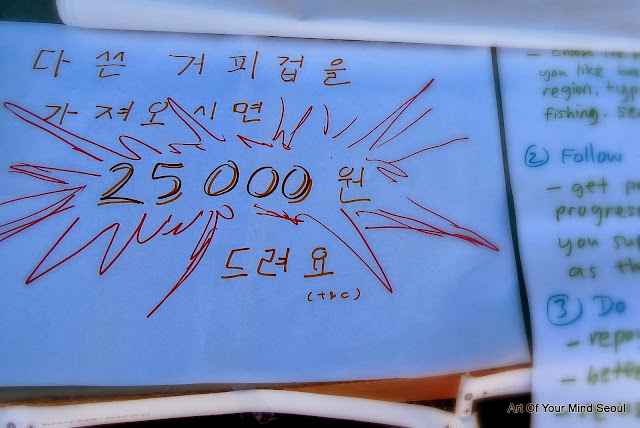 다 쓴 거피겁을
가져오시면
25000 원
드려요
(t&c)
- choose the
you like
region, typ
fishing. se
② Follow
- get pe
progres
you su
as th
③ Do
- repo
- bete
Art Of Your Mind Seoul